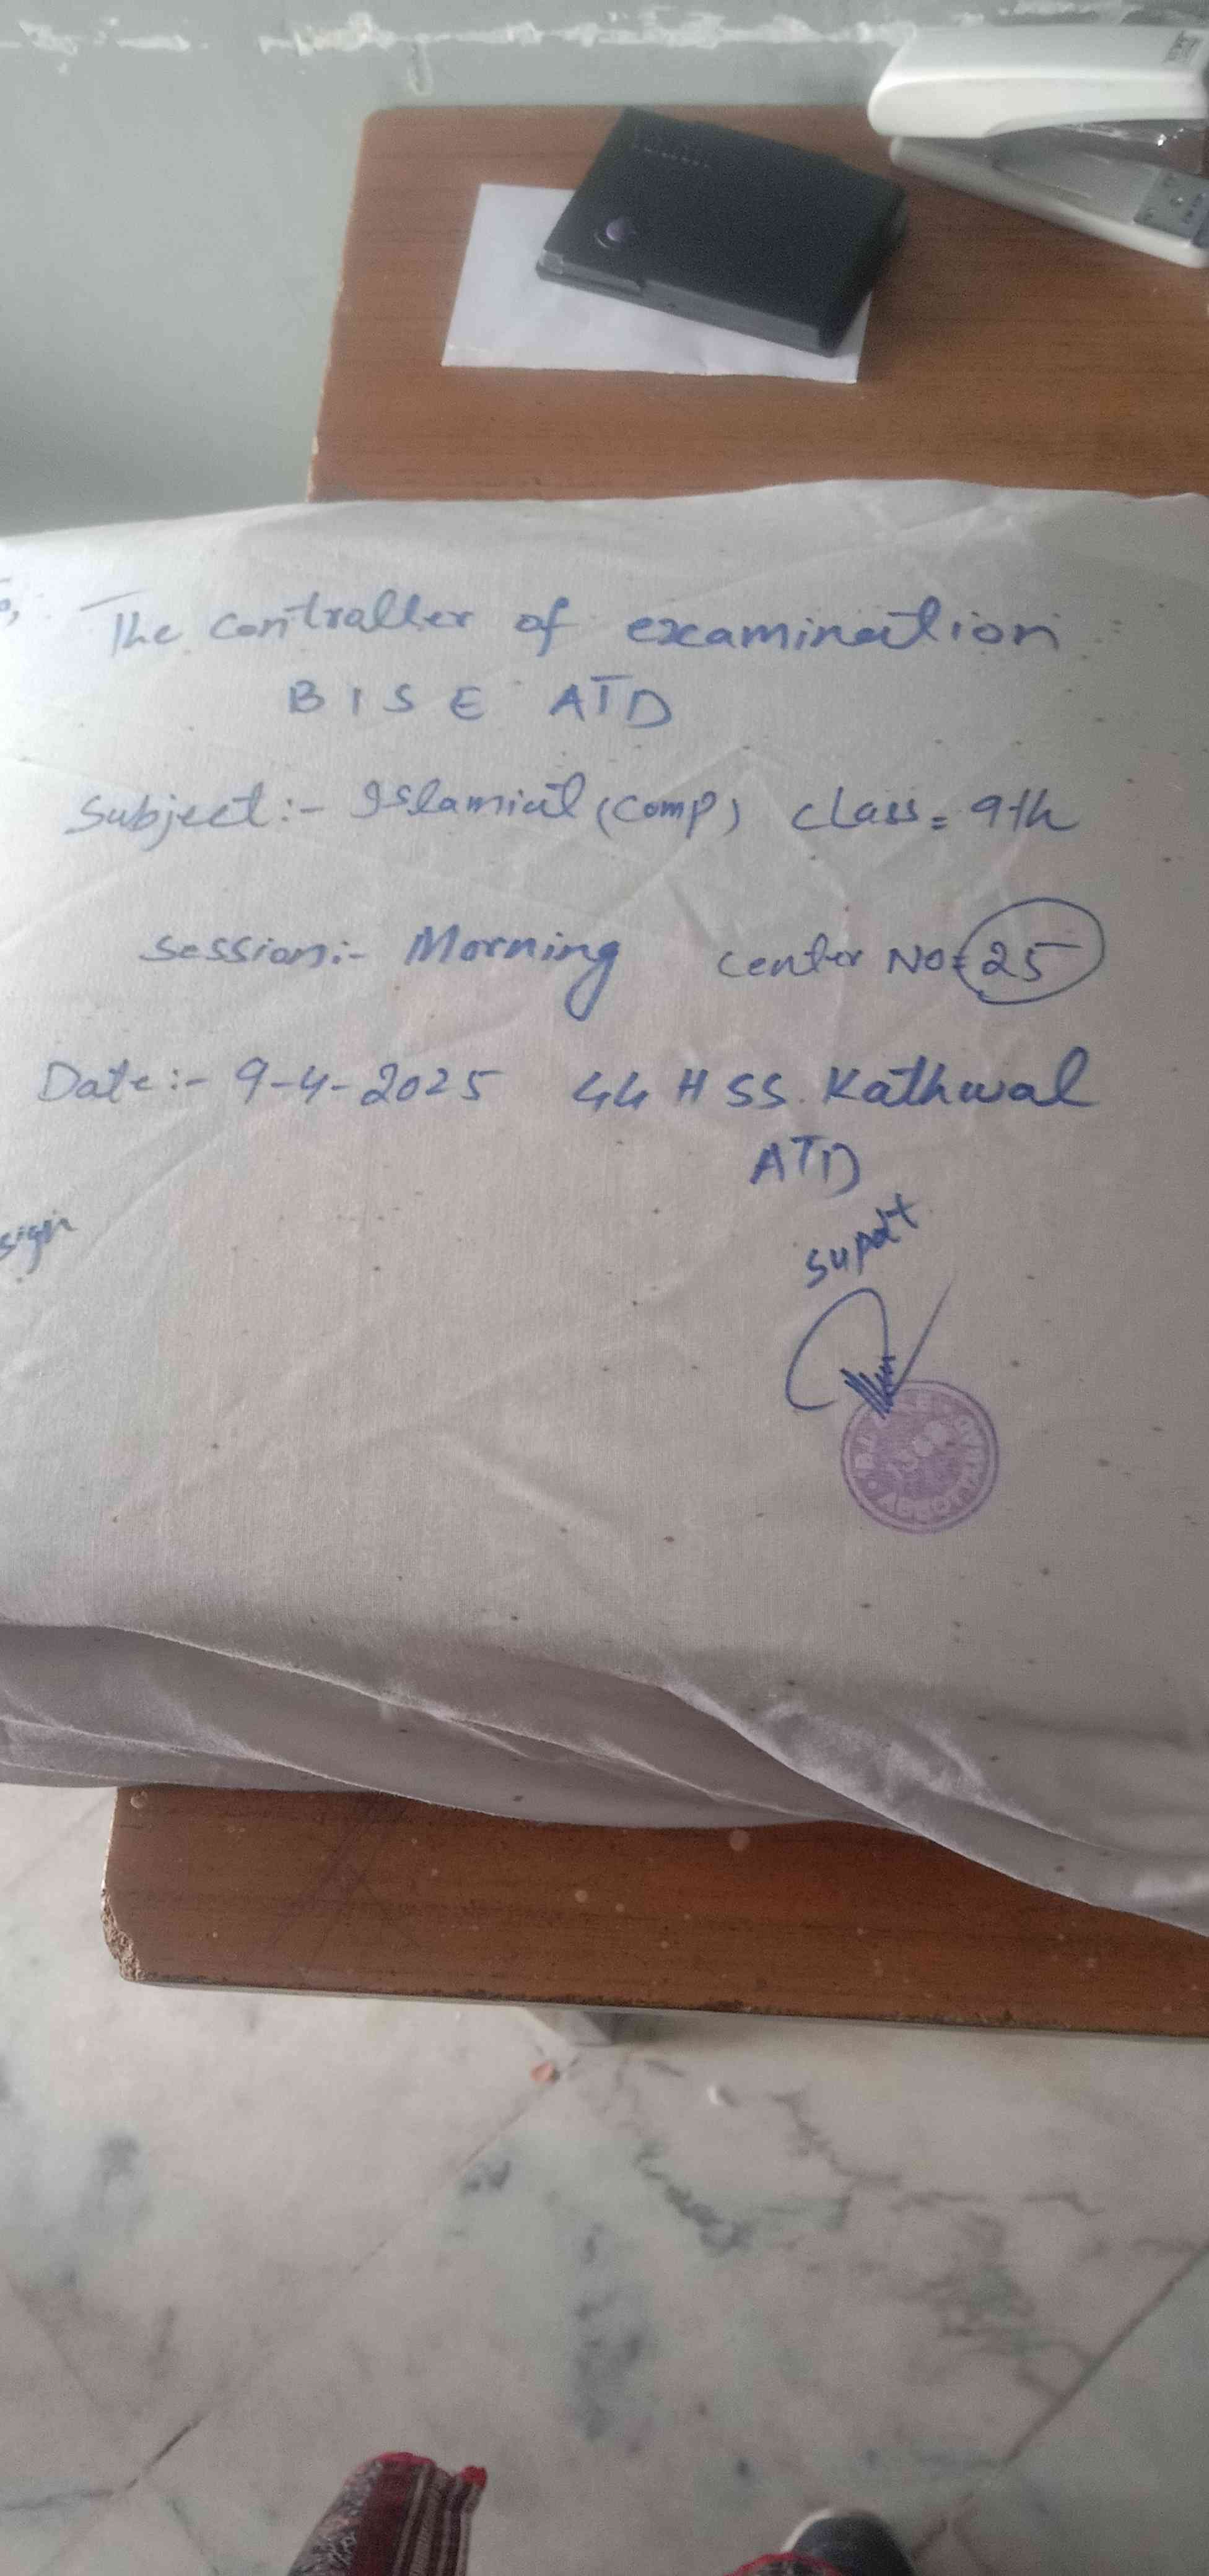 The contraller of examination
BISE ATD
Subject:- Islamiat (comp) class = 9th
session:- Morning center NO = 25
Date:- 9-4-2025 GG HSS. Kathwal
ATD
sign
supdt
ABBOTTABAD